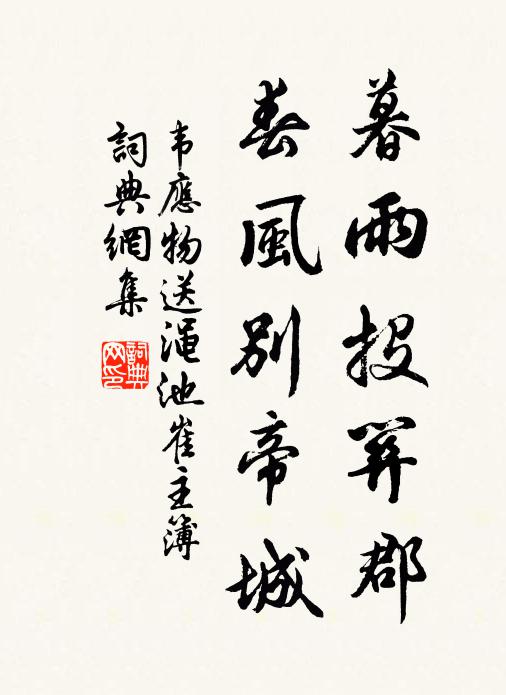 暮雨投關郡
春風別帝城
韦應物送渑池崔主簿
詞典網集
詞典
网印